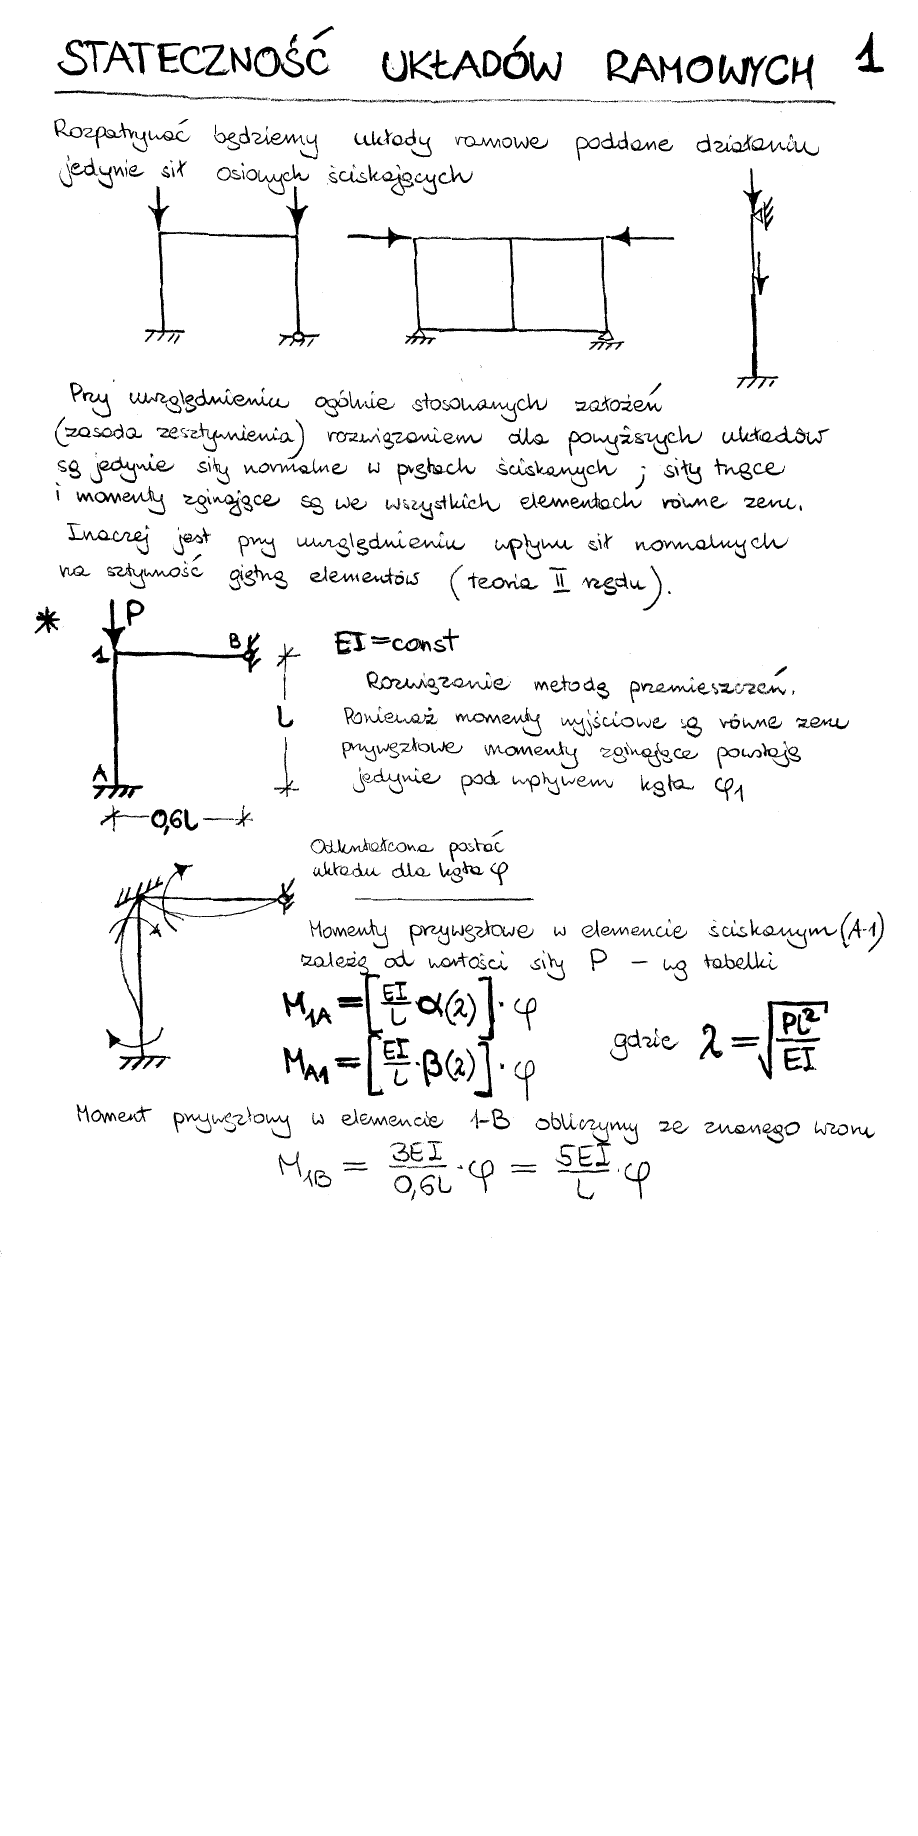 STATECZNOŚĆ UKŁADÓW RAMOWYCH 1
Rozpatrywać będziemy układy ramowe poddane działaniu
jedynie sił osiowych ściskających
Przy uwzględnieniu ogólnie stosowanych założeń
(zasada zesztywnienia) rozwiązaniem dla powyższych układów
są jedynie siły normalne w prętach ściskanych ; siły tnące
i momenty zginające są we wszystkich elementach równe zeru.
Inaczej jest przy uwzględnieniu wpływu sił normalnych
na sztywność giętną elementów (teoria II rzędu).
* P
1 B EI=const
Rozwiązanie metodą przemieszczeń.
L Ponieważ momenty wyjściowe są równe zeru
przywęzłowe momenty zginające powstają
A jedynie pod wpływem kąta φ1
0,6L
Odkształcona postać
układu dla kąta φ
Momenty przywęzłowe w elemencie ściskanym (A-1)
zależą od wartości siły P – wg tabelki
M1A = [EI/L α(λ)] · φ
gdzie λ = √(PL²/EI)
MA1 = [EI/L · β(λ)] · φ
Moment przywęzłowy w elemencie 1-B obliczymy ze znanego wzoru
M1B = 3EI/0,6L · φ = 5EI/L · φ